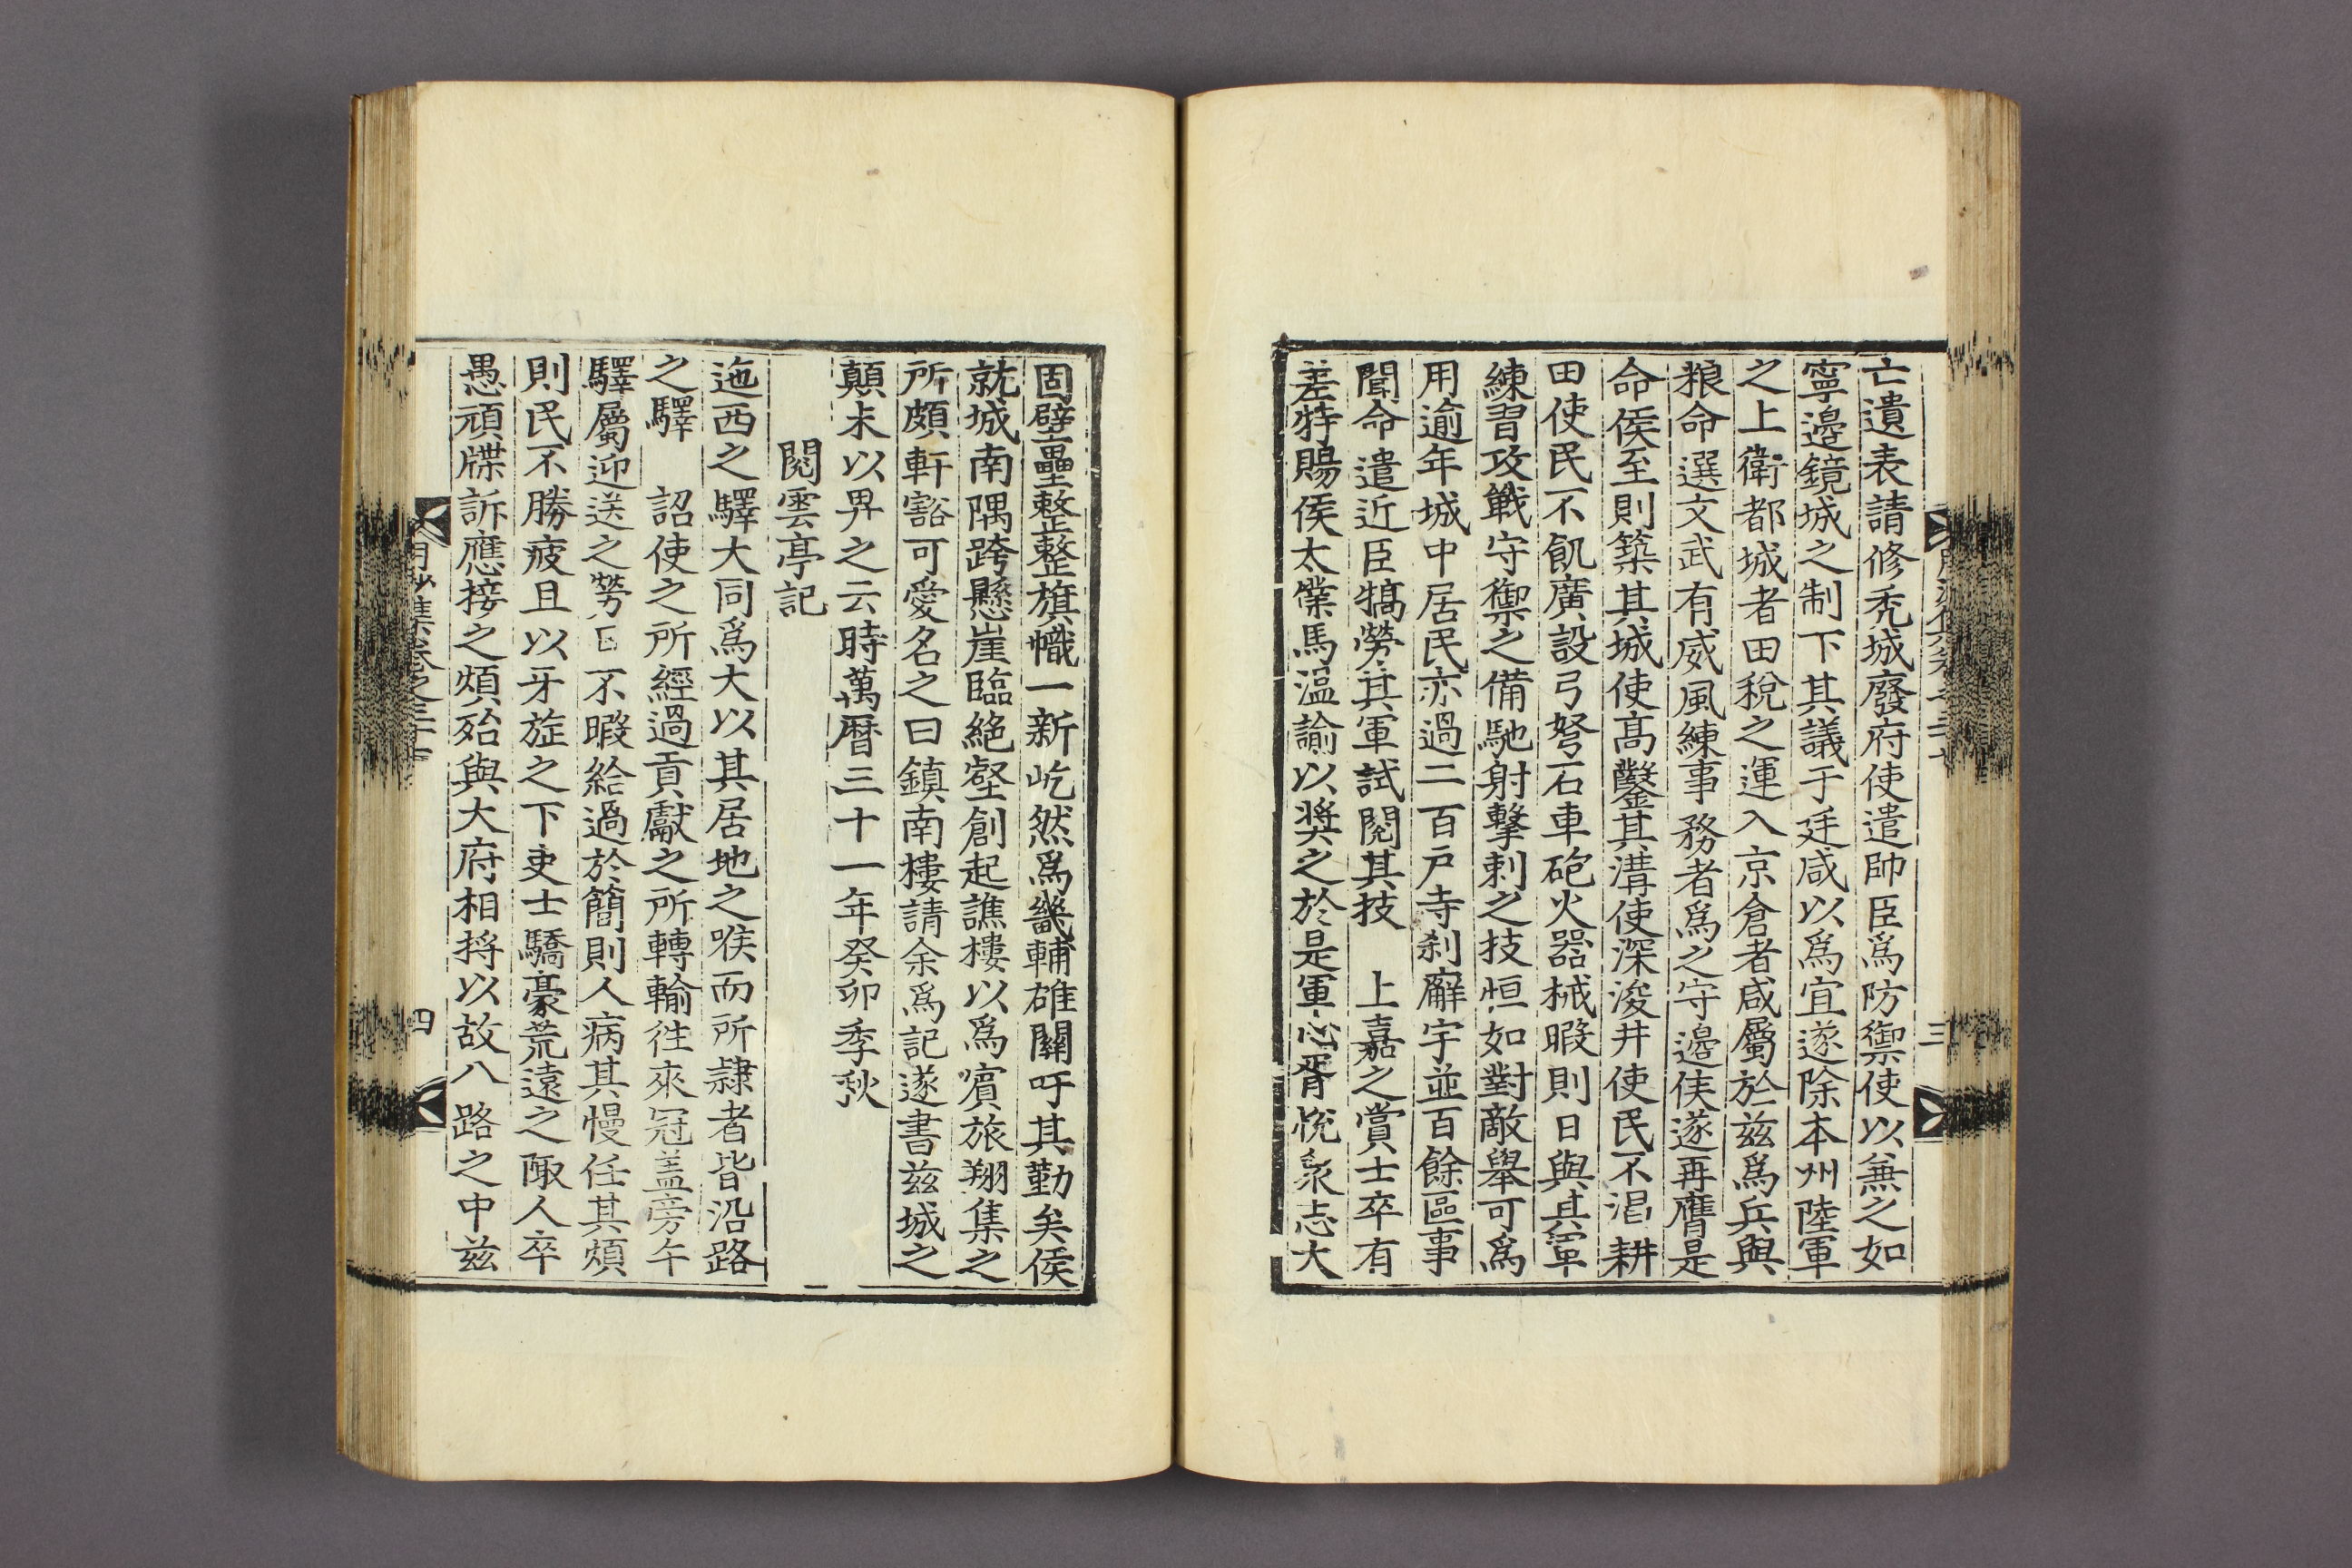 亡遺表請修禿城廢府使遣帥臣爲防禦使以兼之如
寧邊鏡城之制下其議于廷咸以爲宜遂除本州陸軍
之上衛都城者田稅之運入京倉者咸屬於玆爲兵與
粮命選文武有威風練事務者爲之守邊侯遂再膺是
命侯至則築其城使高鑿其溝使深浚井使民不渴耕
田使民不飢廣設弓弩石車砲火器械暇則日與其軍
練習攻戰守禦之備馳射擊剌之技恒如對敵舉可爲
用逾年城中居民亦過二百戶寺刹廨宇並百餘區事
聞命遣近臣犒勞其軍試閱其技　上嘉之賞士卒有
差特賜侯太僕馬溫諭以奬之於是軍心胥悅衆志大
三
固壁壘整整旗幟一新屹然爲畿輔雄關吁其勤矣侯
就城南隅跨懸崖臨絶壑創起譙樓以爲賓旅翔集之
所頗軒豁可愛名之曰鎭南樓請余爲記遂書玆城之
顚末以畀之云時萬曆三十一年癸卯季秋
閱雲亭記
迤西之驛大同爲大以其居地之喉而所隷者皆沿路
之驛　詔使之所經過貢獻之所轉輸徃來冠盖旁午
驛屬迎送之勞日不暇給過於簡則人病其慢任其煩
則民不勝疲且以牙旋之下吏士驕豪荒遠之陬人卒
愚頑牒訴應接之煩殆與大府相捋以故八路之中玆
月沙集卷之三十七
四